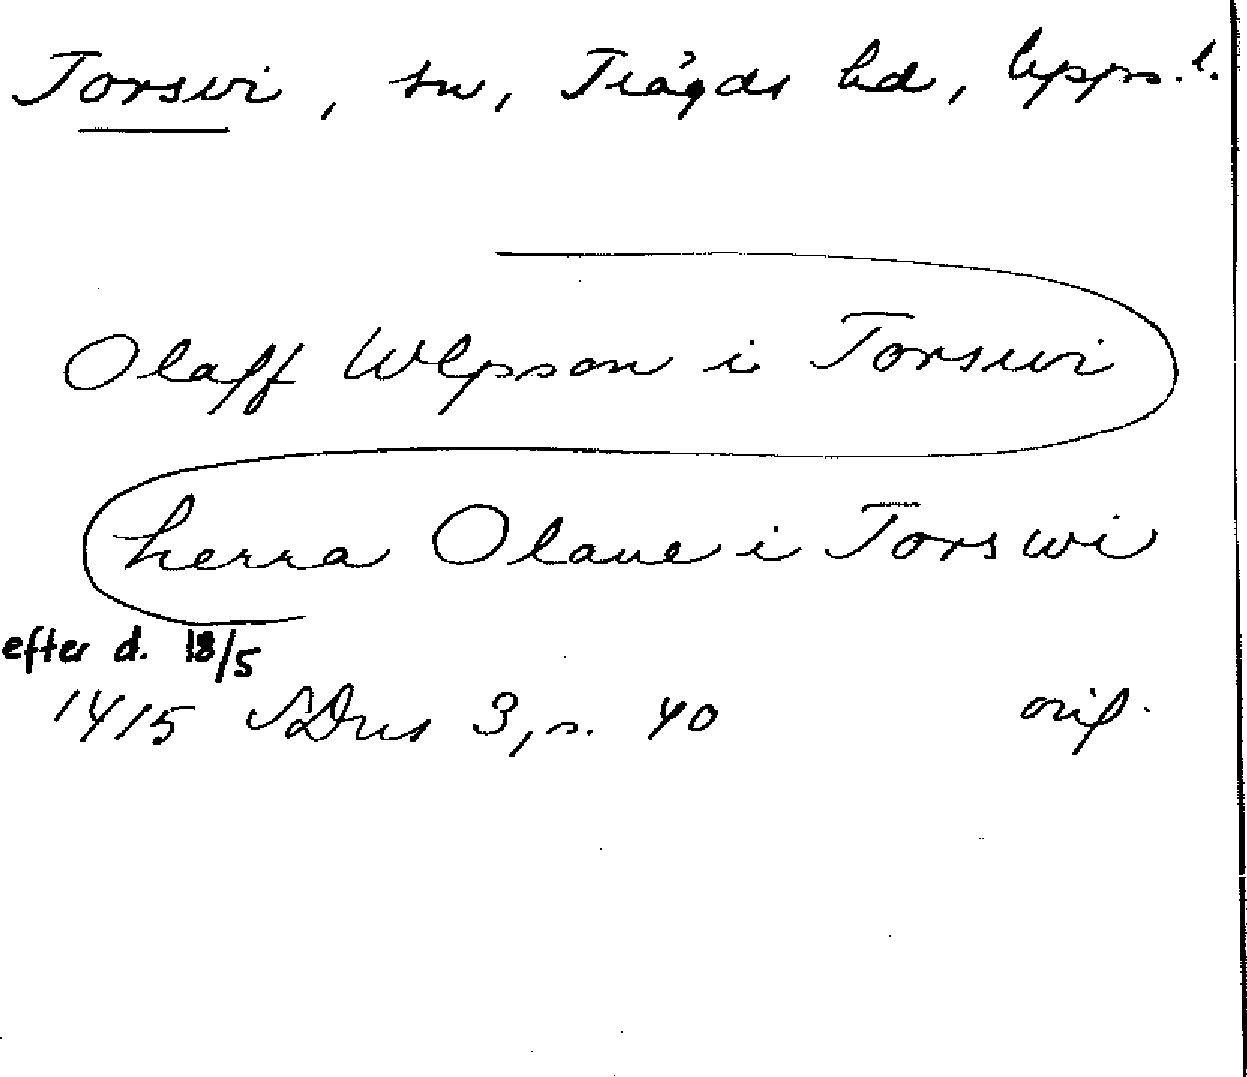 Torsvi, sn, Trögds hd, Upps. l.
Olaff Wlpson i Torswi
herra Olaue i Torswi
efter d. 18/5
1415 SDns 3, s. 40 orig.